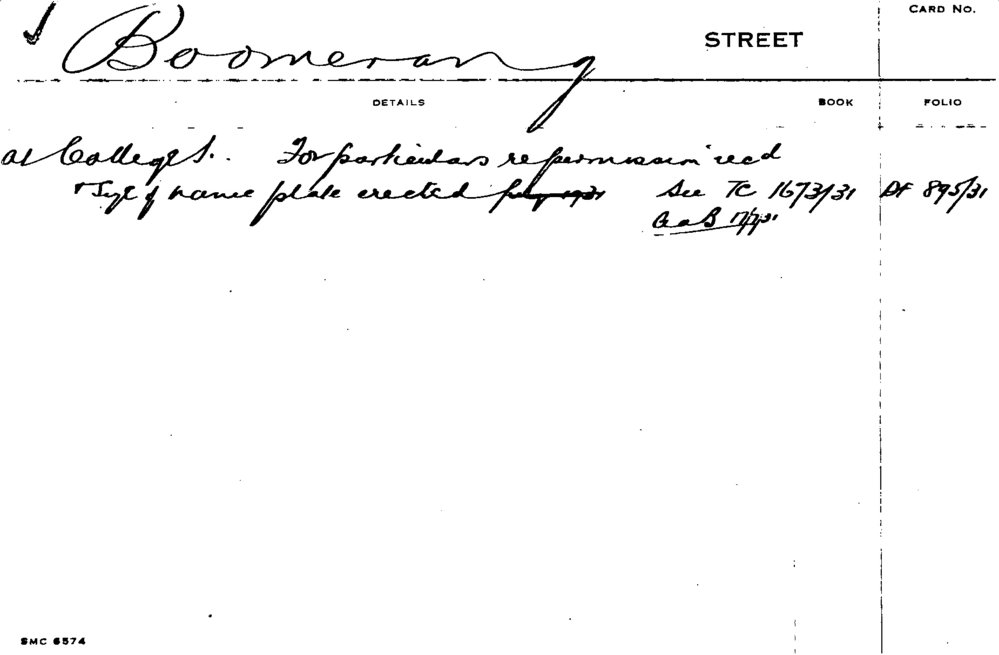 CARD NO.
Boomerang STREET
DETAILS BOOK FOLIO
at College St. For particulars re permission rec'd
& Type of name plate erected July 1931 See TC 1673/31 DF 895/31
17/7/31
SMC 6574